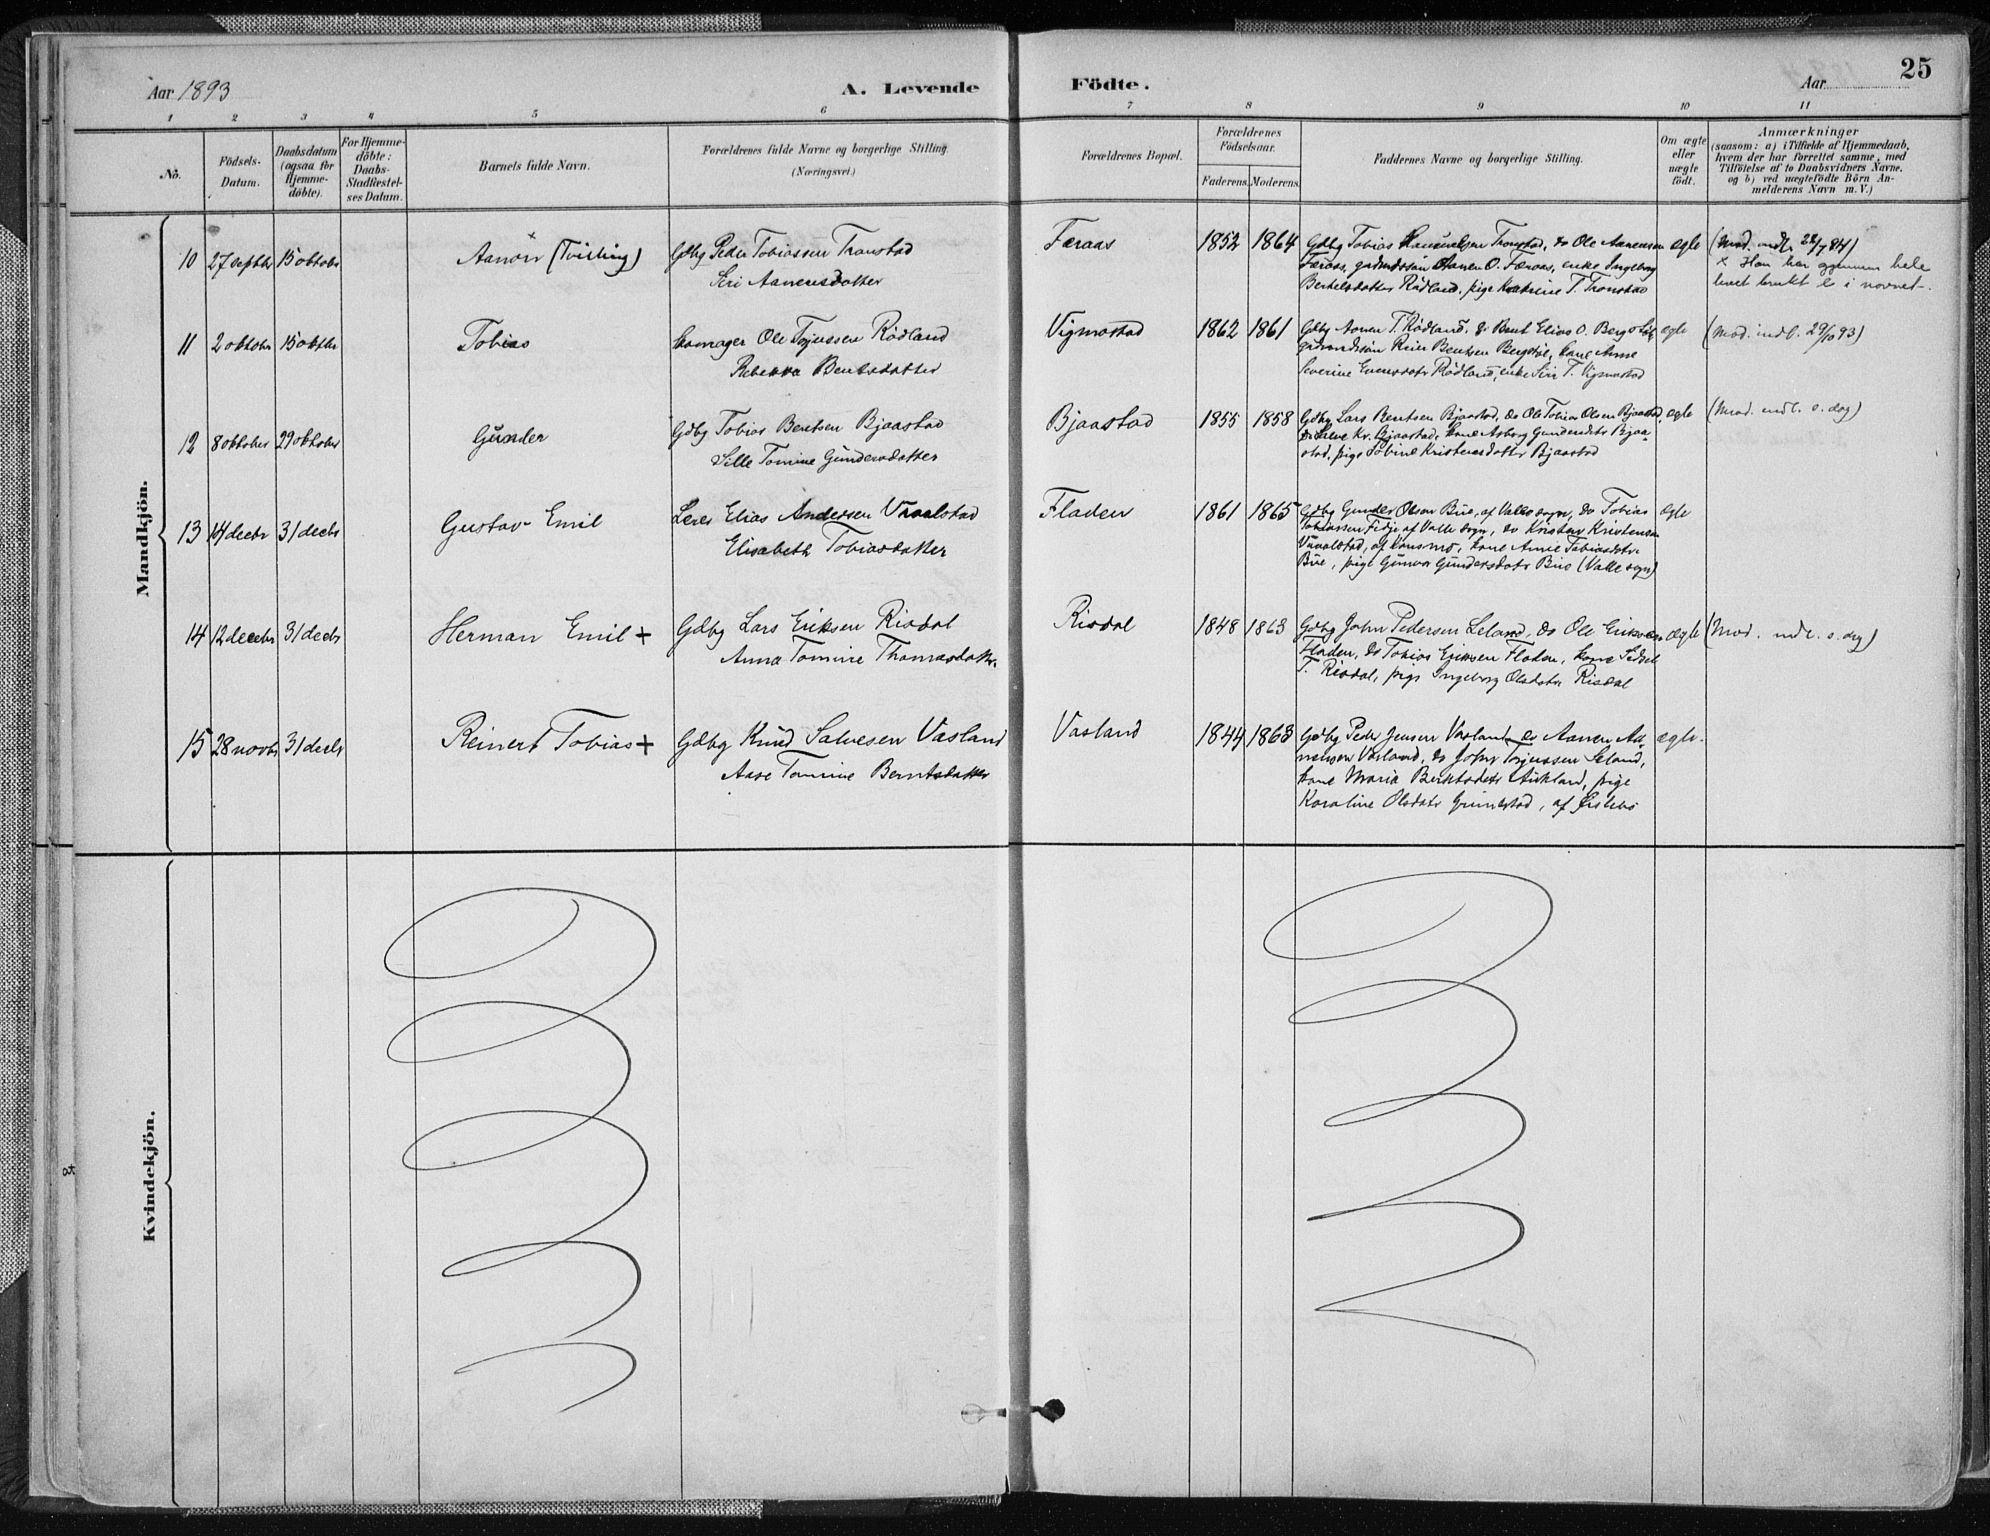 Aar 1893
A. Levende
Födte.
Aar
25
1
2
3
4
5
6
7
8
9
10
11
No.
Födsels-
Datum.
Daabsdatum
(ogsaa for
Hjemme-
döbte).
For Hjemme-
döbte:
Daabs-
Stadfæstel-
ses Datum.
Barnets fulde Navn.
Forældrenes fulde Navne og borgerlige Stilling.
(Næringsvei.)
Forældrenes Bopæl.
Forældrenes
Födselsaar.
Faderens.
Moderens.
Faddernes Navne og borgerlige Stilling.
Om ægte
eller
uægte
födt.
Anmærkninger
(saasom: a) i Tilfælde af Hjemmedaab,
hvem der har forrettet samme, med
Tilföielse af to Daabsvidners Navne,
og b) ved uægtefödte Börn An-
melderens Navn m. V.)
Mandkjön.
10 27 septbr 15 oktobr Aanon (Tvilling) Gdbg Peder Tobiassen Tronstad
Siri Aanensdatter
Færaas 1852 1864 Gdbg Tobias Tronstad, do Ole Aanensen ægte
Færaas, gaardmdssön Aanen O. Færaas, enke Ingeborg
Bertelsdatter Rödland, pige Katrine T. Tronstad
(Mod. indl. 22/7 84)
x Han har gjennem hele
livet brukt o i navnet.
11 2 oktobr 15 oktbr Tobias komager Ole Tojussen Rödland
Rebekka Bentsdatter
Vigmostad 1862 1861 Gdbg Aanen T. Rödland, do Bent Elias O. Berg ægte (Mod. indl. 29/10 93)
Reier Bentsen kone Anne
Severine Evensdatr Rödland, enke Siri T. Vigmostad
12 8 oktober 29 oktober Gunder Gdbg Tobias Bentsen Bjaastad
Sille Tomine Gundersdatter
Bjaastad 1855 1858 Gdbg Lars Bentsen Bjaastad, do Ole Tobias Olsen Bjaastad, ægte (Mod. indl. s. dag)
Kr. Bjaastad, kone Asborg Gundersdatr Bjaa-
stad, pige Tobine Kristensdatter Bjaastad
13 14 decbr 31 decbr Gustav Emil Leier Elias Andersen Vaalstad
Elisabeth Tobiasdatter
Fladen 1861 1865 Gdbg Gunder Olsen Bue, af Valle sogn, do Tobias ægte
Tobiassen Fidje af Valle sogn, do Kristen Kristensen
af Konsmo, kone Anne Tobiasdatr
Bue, pige Gunvor Gundersdatr Bue (Valle sogn)
14 12 decebr 31 decbr Herman Emil + Gdbg Lars Eriksen Risdal
Anna Tomine Thomasdatter
Risdal 1848 1863 Gdbg John Pedersen Leland, do Ole Eriksen ægte (Mod. indl. s. dag)
Fladen, do Tobias Eriksen Fladen, kone Sidsel
T. Risdal, pige Ingeborg Olsdatr Risdal
15 28 novbr 31 decbr Reinert Tobias + Gdbg Knud Salvesen Vasland
Aase Tomine Berntsdatter
Vasland 1844 1863 Gdbg Peder Jensen Vasland do Aanen Aa- ægte.
nensen Vasland, do John Tojussen Leland,
kone Maria Berntsdatr Aukland, pige
Karoline Olsdatr Grimestad, af Øislebö
Kvindekjön.